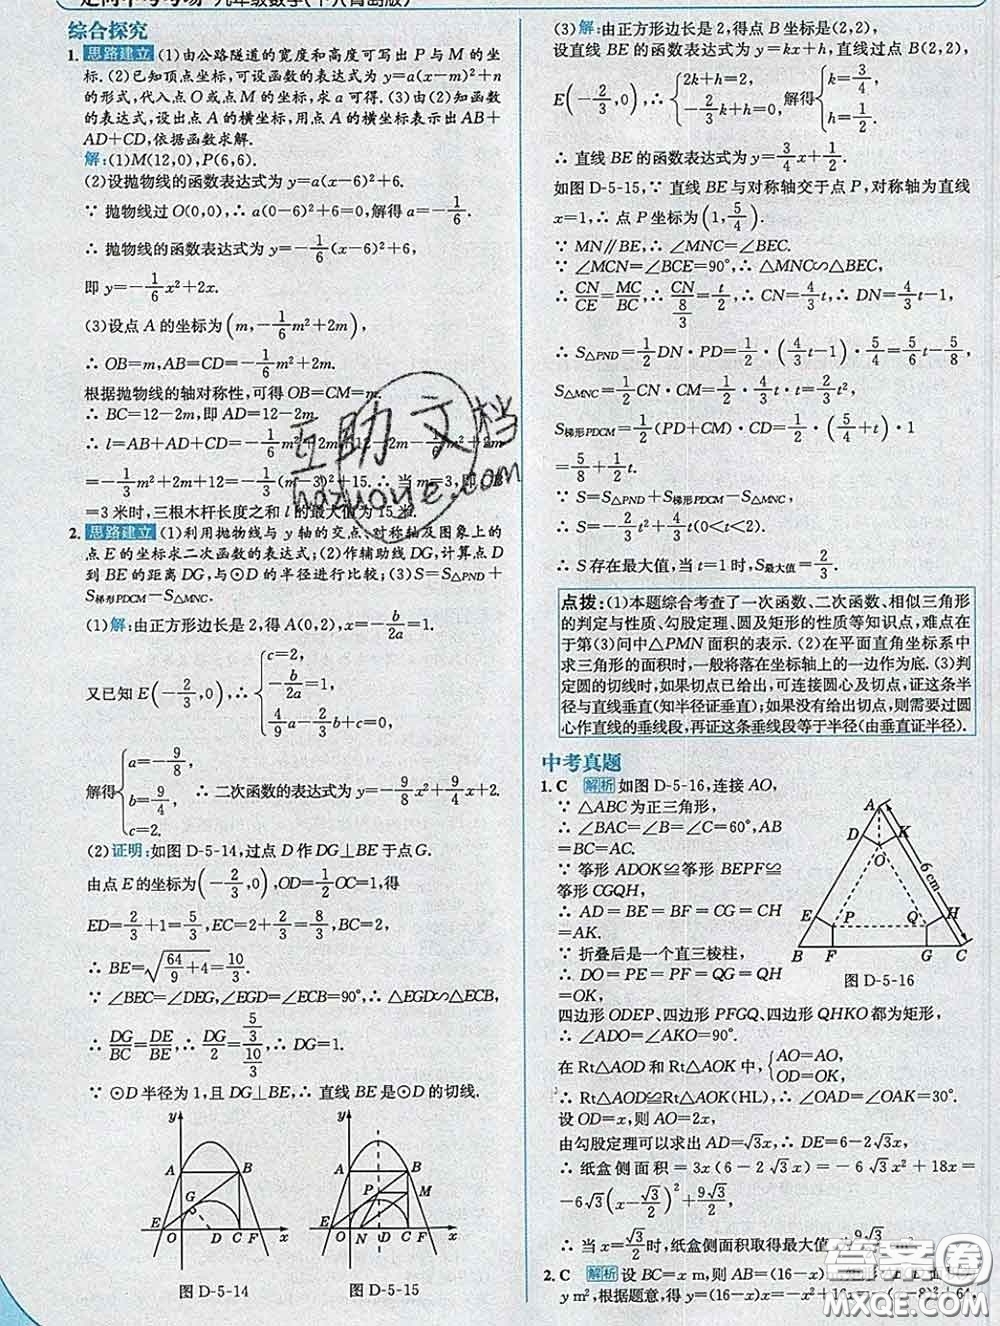 走向中考考场 九年级数学(下)(青岛版)
综合探究
1. 思路建立 (1)由公路隧道的宽度和高度可写出 P 与 M 的坐
标. (2)已知顶点坐标,可设函数的表达式为 y=a(x-m)²+n
的形式,代入点 O 或点 M 的坐标,求 a 可得. (3)由(2)知函数
的表达式,设出点 A 的横坐标,用点 A 的横坐标表示出 AB+
AD+CD,依据函数求解.
解:(1)M(12,0),P(6,6).
(2)设抛物线的函数表达式为 y=a(x-6)²+6.
∵ 抛物线过 O(0,0),∴ a(0-6)²+6=0,解得 a=-1/6.
∴ 抛物线的函数表达式为 y=-1/6(x-6)²+6,
即 y=-1/6x²+2x.
(3)设点 A 的坐标为(m,-1/6m²+2m),
∴ OB=m,AB=CD=-1/6m²+2m.
根据抛物线的轴对称性,可得 OB=CM=m.
∴ BC=12-2m,即 AD=12-2m.
∴ l=AB+AD+CD=-1/6m²+2m+12-2m-1/6m²+2m
=-1/3m²+2m+12=-1/3(m-3)²+15. ∴ 当 m=3,即 OB
=3 米时,三根木杆长度之和 l 的最大值为 15 米.
2. 思路建立 (1)利用抛物线与 y 轴的交点、对称轴及图象上的
点 E 的坐标求二次函数的表达式;(2)作辅助线 DG,计算点 D
到 BE 的距离 DG,与⊙D 的半径进行比较;(3)S=S△PND+
S梯形PDCM-S△MNC.
(1)解:由正方形边长是 2,得 A(0,2),x=-b/2a=1.
又已知 E(-2/3,0),∴ {c=2, -b/2a=1, 4/9a-2/3b+c=0.
解得{a=-9/8, b=9/4, c=2. ∴ 二次函数的表达式为 y=-9/8x²+9/4x+2.
(2)证明:如图 D-5-14,过点 D 作 DG⊥BE 于点 G.
由点 E 的坐标为(-2/3,0),OD=1/2OC=1,得
ED=2/3+1=5/3,EC=2+2/3=8/3,BC=2,
∴ BE=√(64/9+4)=10/3.
∵ ∠BEC=∠DEG,∠EGD=∠ECB=90°,∴ △EGD∽△ECB,
∴ DG/BC=DE/BE,∴ DG/2=(5/3)/(10/3),∴ DG=1.
∵ ⊙D 半径为 1,且 DG⊥BE,∴ 直线 BE 是⊙D 的切线.
y A B G E O D C F x
图 D-5-14
y A B P M E O N D C F x
图 D-5-15
(3)解:由正方形边长是 2,得点 B 的坐标为(2,2),
设直线 BE 的函数表达式为 y=kx+h,直线过点 B(2,2),
E(-2/3,0),∴ {2k+h=2, -2/3k+h=0, 解得{k=3/4, h=1/2.
∴ 直线 BE 的函数表达式为 y=3/4x+1/2.
如图 D-5-15,∵ 直线 BE 与对称轴交于点 P,对称轴为直线
x=1,∴ 点 P 坐标为(1,5/4).
∵ MN∥BE,∴ ∠MNC=∠BEC.
∵ ∠MCN=∠BCE=90°,∴ △MNC∽△BEC,
∴ CN/CE=MC/BC,∴ CN/(8/3)=t/2,∴ CN=4/3t,∴ DN=4/3t-1,
∴ S△PND=1/2DN·PD=1/2·(4/3t-1)·5/4=5/6t-5/8,
S△MNC=1/2CN·CM=1/2·4/3t·t=2/3t²,
S梯形PDCM=1/2(PD+CM)·CD=1/2·(5/4+t)·1
=5/8+1/2t.
∵ S=S△PND+S梯形PDCM-S△MNC,
∴ S=-2/3t²+4/3t(0<t<2).
∴ S 存在最大值,当 t=1 时,S最大值=2/3.
点拨:(1)本题综合考查了一次函数、二次函数、相似三角形
的判定与性质、勾股定理、圆及矩形的性质等知识点,难点在
于第(3)问中△PMN 面积的表示. (2)在平面直角坐标系中
求三角形的面积时,一般将落在坐标轴上的一边作为底. (3)判
定圆的切线时,如果切点已给出,可连接圆心及切点,证这条半
径与直线垂直(知半径证垂直);如果没有给出切点,则需要过圆
心作直线的垂线段,再证这条垂线段等于半径(由垂直证半径).
中考真题
1. C 解析 如图 D-5-16,连接 AO,
∵ △ABC 为正三角形,
∴ ∠BAC=∠B=∠C=60°,AB
=BC=AC.
∵ 筝形 ADOK≌筝形 BEPF≌
筝形 CGQH,
∴ AD=BE=BF=CG=CH
=AK.
∵ 折叠后是一个直三棱柱,
∴ DO=PE=PF=QG=QH
=OK,
四边形 ODEP、四边形 PFGQ、四边形 QHKO 都为矩形,
∴ ∠ADO=∠AKO=90°.
A D K O 6 cm E P Q H B F G C
图 D-5-16
在 Rt△AOD 和 Rt△AOK 中,{AO=AO, OD=OK,
∴ Rt△AOD≌Rt△AOK(HL),∴ ∠OAD=∠OAK=30°.
设 OD=x,则 AO=2x,
由勾股定理可以求出 AD=√3x,∴ DE=6-2√3x,
∴ 纸盒侧面积=3x(6-2√3x)=-6√3x²+18x=
-6√3(x-√3/2)²+9√3/2,
∴ 当 x=√3/2时,纸盒侧面积取得最大值为 9√3/2 cm².
2. C 解析 设 BC=x m,则 AB=(16-x)
y m²,根据题意,得 y=(16-x)x=-x²+16x=-(x-8)²+64,
互助文档
hazuoye.com
答案卷
MXQE.COM